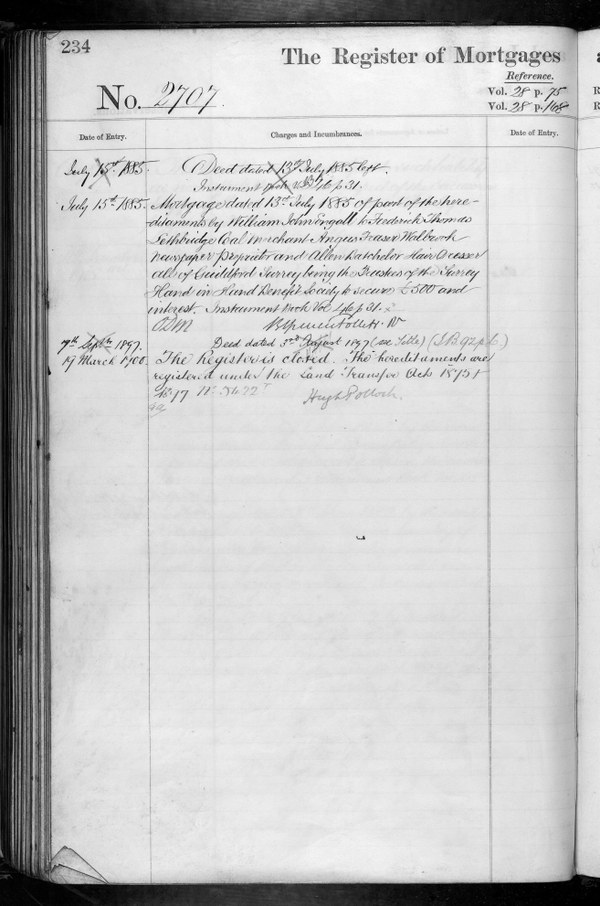 234
The Register of Mortgages
Reference.
No. 2707.
Vol. 28 p. 75
Vol. 28 p. 168
Date of Entry.
Charges and Incumbrances.
Date of Entry.
July 15th 1885.
Deed dated 13th July 1885 left.
Instrument Book Vol 46 p 31.
July 15th 1885.
Mortgage dated 13th July 1885 of part of the here-
ditaments by William John Engall to Frederick Thomas
Lethbridge Coal Merchant Angus Fraser Walbrook
Newspaper Proprietor and Allen Batchelor Hair Dresser
all of Guildford Surrey being the Trustees of the Surrey
Hand in Hand Benefit Society to secure £500 and
interest. Instrument Book Vol 46 p 31.
7th Sepbr 1897.
Deed dated 3rd August 1897 (see Title)
19 March 1900.
The Register is closed. The hereditaments are
registered under the Land Transfer Acts 1875 &
Hugh Pollock.